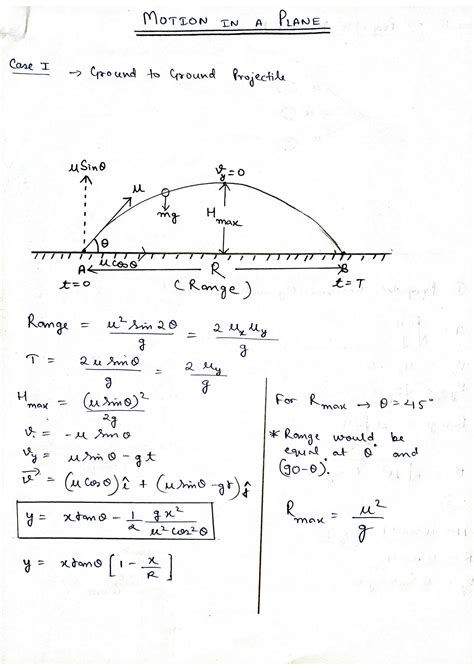 MOTION IN A PLANE
Case I → Ground to Ground Projectile
uSinθ
u
v_y = 0
mg
H_max
θ
u cosθ
A
R
B
t=0
(Range)
t=T
Range = u² sin 2θ / g = 2 u_x u_y / g
T = 2 u sinθ / g = 2 u_y / g
H_max = (u sinθ)² / 2g
v. = -u sinθ
v_y = u sinθ - gt
v⃗ = (u cosθ) î + (u sinθ - gt) ĵ
y = x tanθ - 1/2 gx² / u² cos²θ
y = x tanθ [1 - x/R]
For R_max → θ = 45°
* Range would be
equal at θ° and
(90-θ)°.
R_max = u² / g